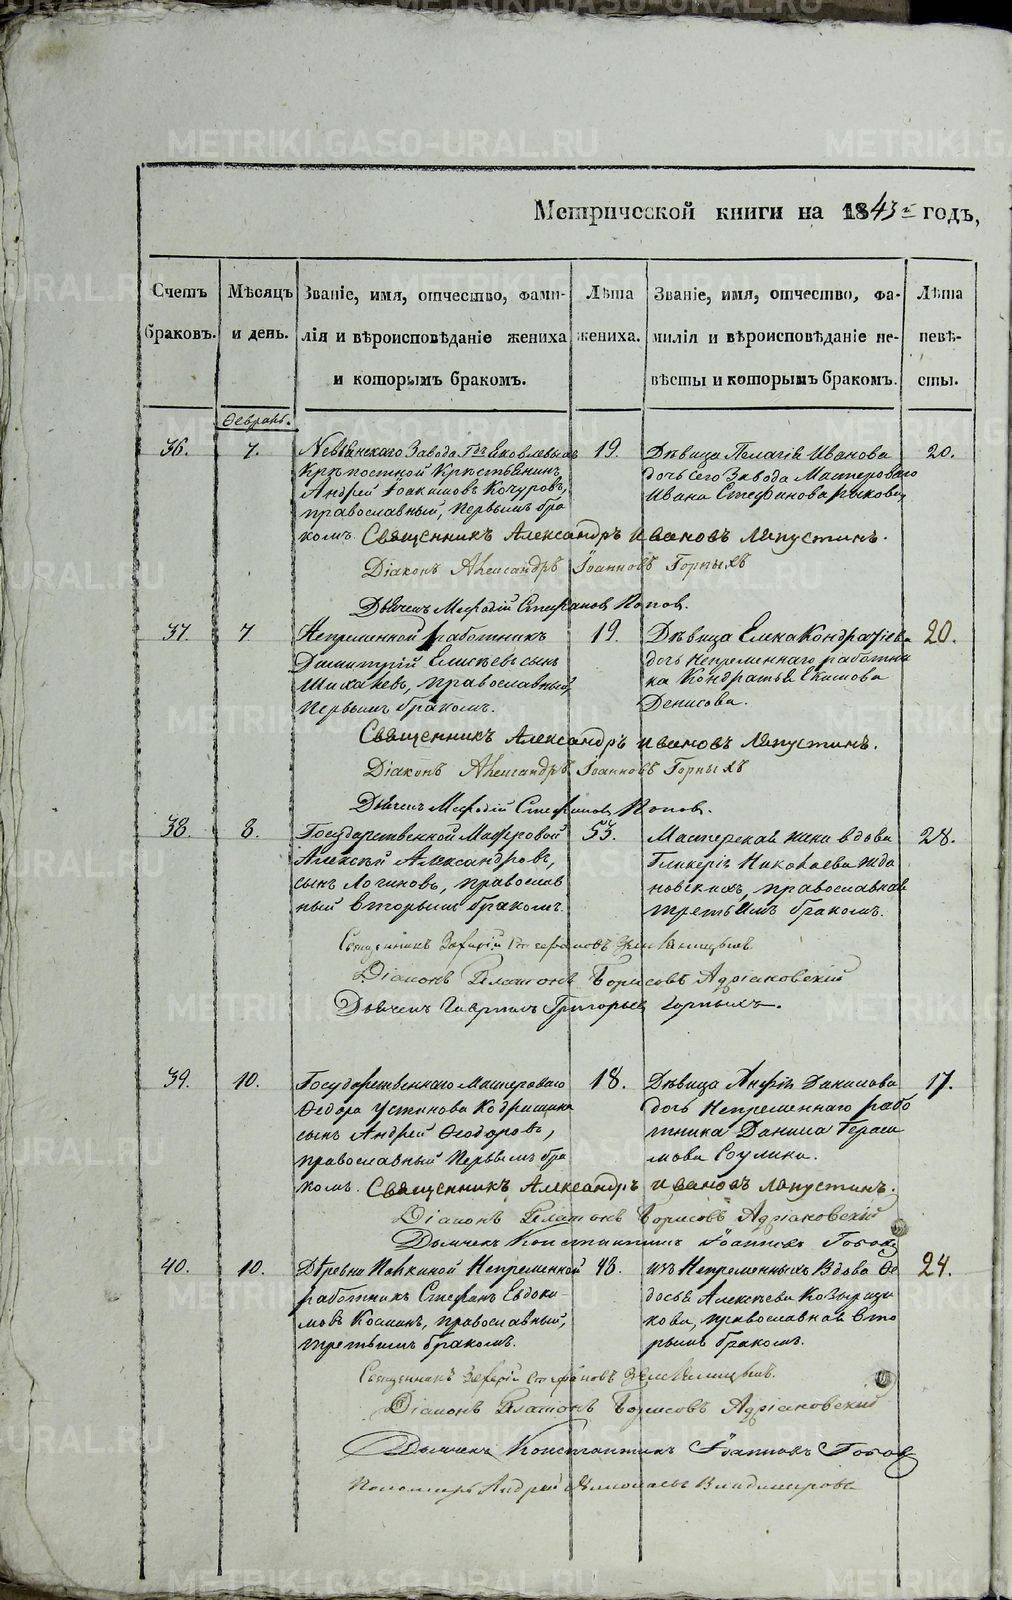 METRIKI.GASO-URAL.RU
Метрической книги на 1843й годъ,
Счетъ браковъ.
Мѣсяцъ и день.
Званіе, имя, отчество, фами-
лія и вѣроисповѣданіе жениха
и которымъ бракомъ.
Лѣта жениха.
Званіе, имя, отчество, фа-
милія и вѣроисповѣданіе не-
вѣсты и которымъ бракомъ.
Лѣта невѣ-
сты.
Февраль.
36. 7. Невьянскаго Завода Гдъ Яковлевыхъ 19. Дѣвица Пелагія Иванова 20.
Крѣпостной Крестьянинъ дочь сего Завода Мастероваго
Андрей Іоакимовъ Кочуровъ, Ивана Стефанова
православный, первымъ бра
комъ. Священникъ Александръ Ивановъ Лапустинъ.
Діаконъ Александръ Іоанновъ Горныхъ
Дьячекъ Мефодій Стефановъ Поповъ.
37. 7. Непременной работникъ 19. Дѣвица Елена Кондратіева 20.
Димитрій Елисѣевъ сынъ дочь Непременнаго работни
православный, ка Кондратья Екимова
Первымъ бракомъ. Денисова.
Священникъ Александръ Ивановъ Лапустинъ.
Діаконъ Александръ Іоанновъ Горныхъ
Дьячекъ Мефодій Стефановъ Поповъ.
38. 8. Государственной Мастеровой 53. Мастерская жена вдова 28.
Алексѣй Александровъ, Гликерія Николаева Жда
сынъ Логиновъ, православ новскихъ, православная
ный вторымъ бракомъ. третьимъ бракомъ.
Священникъ Захарій Стефановъ
Діаконъ Платонъ Борисовъ Адріановскій
Дьячекъ Гаврилъ Григорьев Горныхъ.
39. 10. Государственнаго Мастероваго 18. Дѣвица Анфія Данилова 17.
Федора Устинова дочь Непременнаго рабо
сынъ Андрей Феодоровъ, тника Данила Гераси
православный Первымъ бра мова Соулина.
комъ. Священникъ Александръ Ивановъ Лапустинъ.
Діаконъ Платонъ Борисовъ Адріановскій
Дьячекъ Константинъ Іоанновъ
40. 10. Деревни Непременной 48. изъ Непременныхъ Вдова Фе 24.
работникъ Стефанъ Евдоки- досья Алексѣева
мовъ Косминъ, православный, кова, православная вто
третьимъ бракомъ. рымъ бракомъ.
Священникъ Захарій Стефановъ
Діаконъ Платонъ Борисовъ Адріановскій
Дьячекъ Константинъ Іоанновъ
Пономарь Андрей Николаевъ Владимировъ